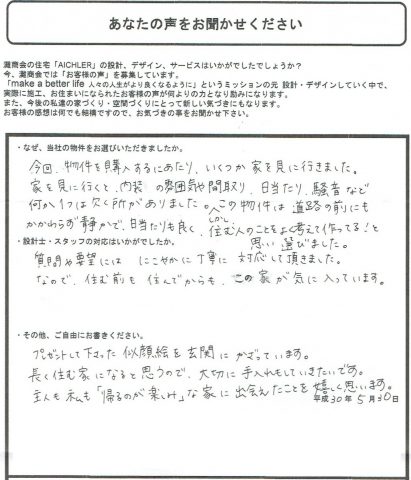 あなたの声をお聞かせください
灘商会の住宅「AICHLER」の設計、デザイン、サービスはいかがでしたでしょうか？
今、灘商会では「お客様の声」を募集しています。
「make a better life 人々の人生がより良くなるように」というミッションの元 設計・デザインしていく中で、
実際に施工、お住まいになられたお客様の声が何よりの力となり励みになります。
また、今後の私達の家づくり・空間づくりにとって新しい気づきにもなります。
お客様の感想は何でも結構ですので、お気づきの事をお聞かせ下さい。
・なぜ、当社の物件をお選びいただきましたか。
今回、物件を購入するにあたり、いくつか家を見に行きました。
家を見に行くと、内装の雰囲気や間取り、日当たり、騒音など
何か1つは欠く所がありました。しかし、この物件は道路の前にも
かかわらず静かで、日当たりも良く、住む人のことをよく考えて作ってる！と
思い選びました。
・設計士・スタッフの対応はいかがでしたか。
質問や要望には にこやかに丁寧に対応して頂きました。
なので、住む前も住んでからも、この家が気に入っています。
・その他、ご自由にお書きください。
プレゼントして下さった似顔絵を玄関にかざっています。
長く住む家になると思うので、大切に手入れもしていきたいです。
主人も私も「帰るのが楽しみ」な家に出会えたことを嬉しく思います。
平成30年5月30日